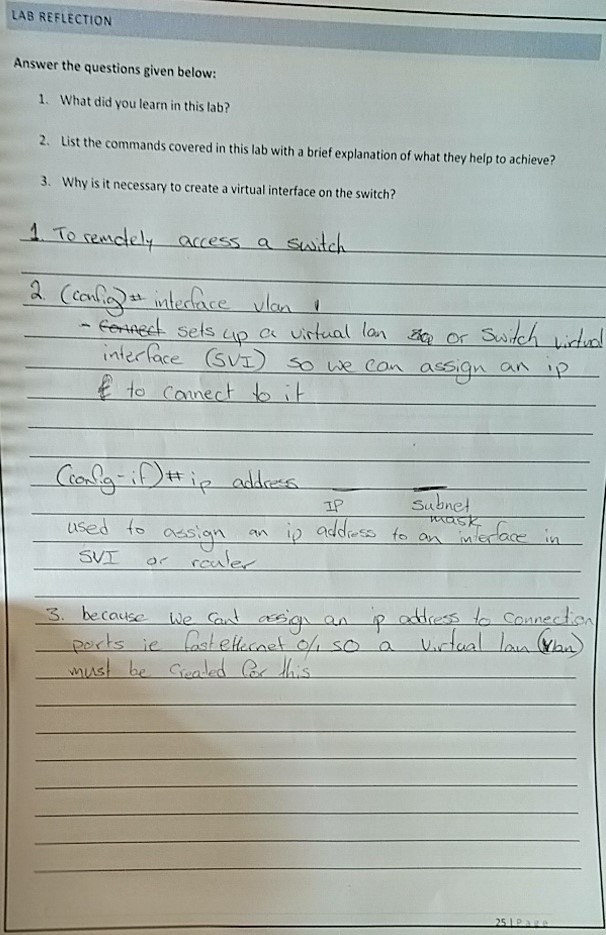 LAB REFLECTION
Answer the questions given below:
1. What did you learn in this lab?
2. List the commands covered in this lab with a brief explanation of what they help to achieve?
3. Why is it necessary to create a virtual interface on the switch?
1. To remotely access a switch
2. (config)# interface vlan 1
- connect sets up a virtual lan or Switch virtual
interface (SVI) so we can assign an ip
to connect to it
(config-if)# ip address
IP Subnet
mask
used to assign an ip address to an interface in
SVI or router
3. because we cant assign an ip address to connection
ports ie fastethernet 0/1 so a virtual lan (vlan)
must be created for this
25 | Page